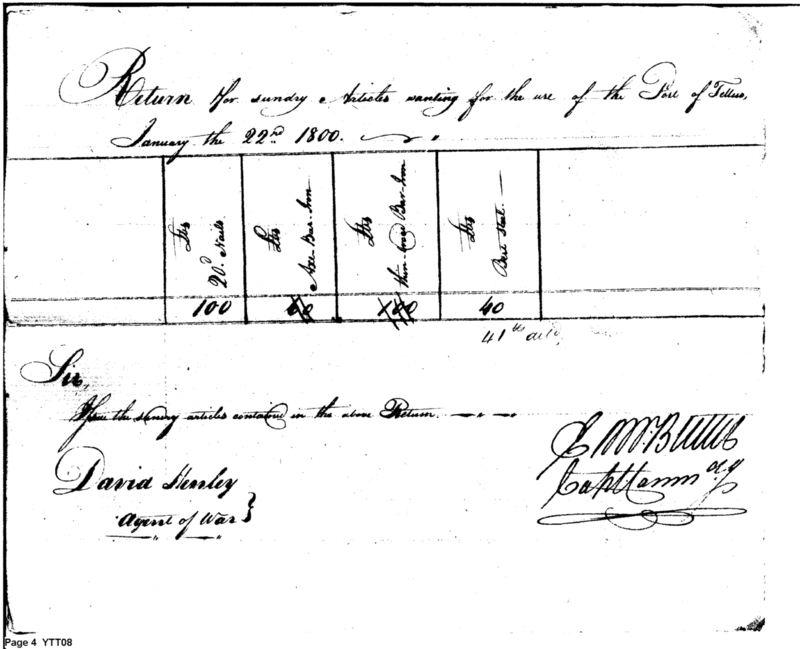 Return for sundry Articles wanting for the use of the Post of Tellico,
January the 22nd 1800.
lbs 20d Nails
lbs Axe-Bar-Iron
lbs Bar-Iron
lbs Best Steel
100
60
100
40
41 lbs deld.
Sir,
Issue the sundry articles contained in the above Return.
David Henley
Agent of War
E. W. Butler
Capt Commdg
Page 4 YTT08